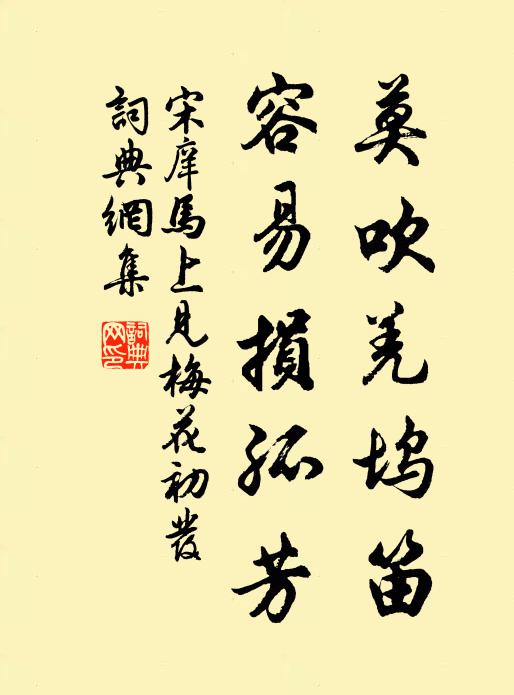 莫吹羌坞笛
容易損孤芳
宋庠馬上見梅花初發
詞典網集
詞典网印